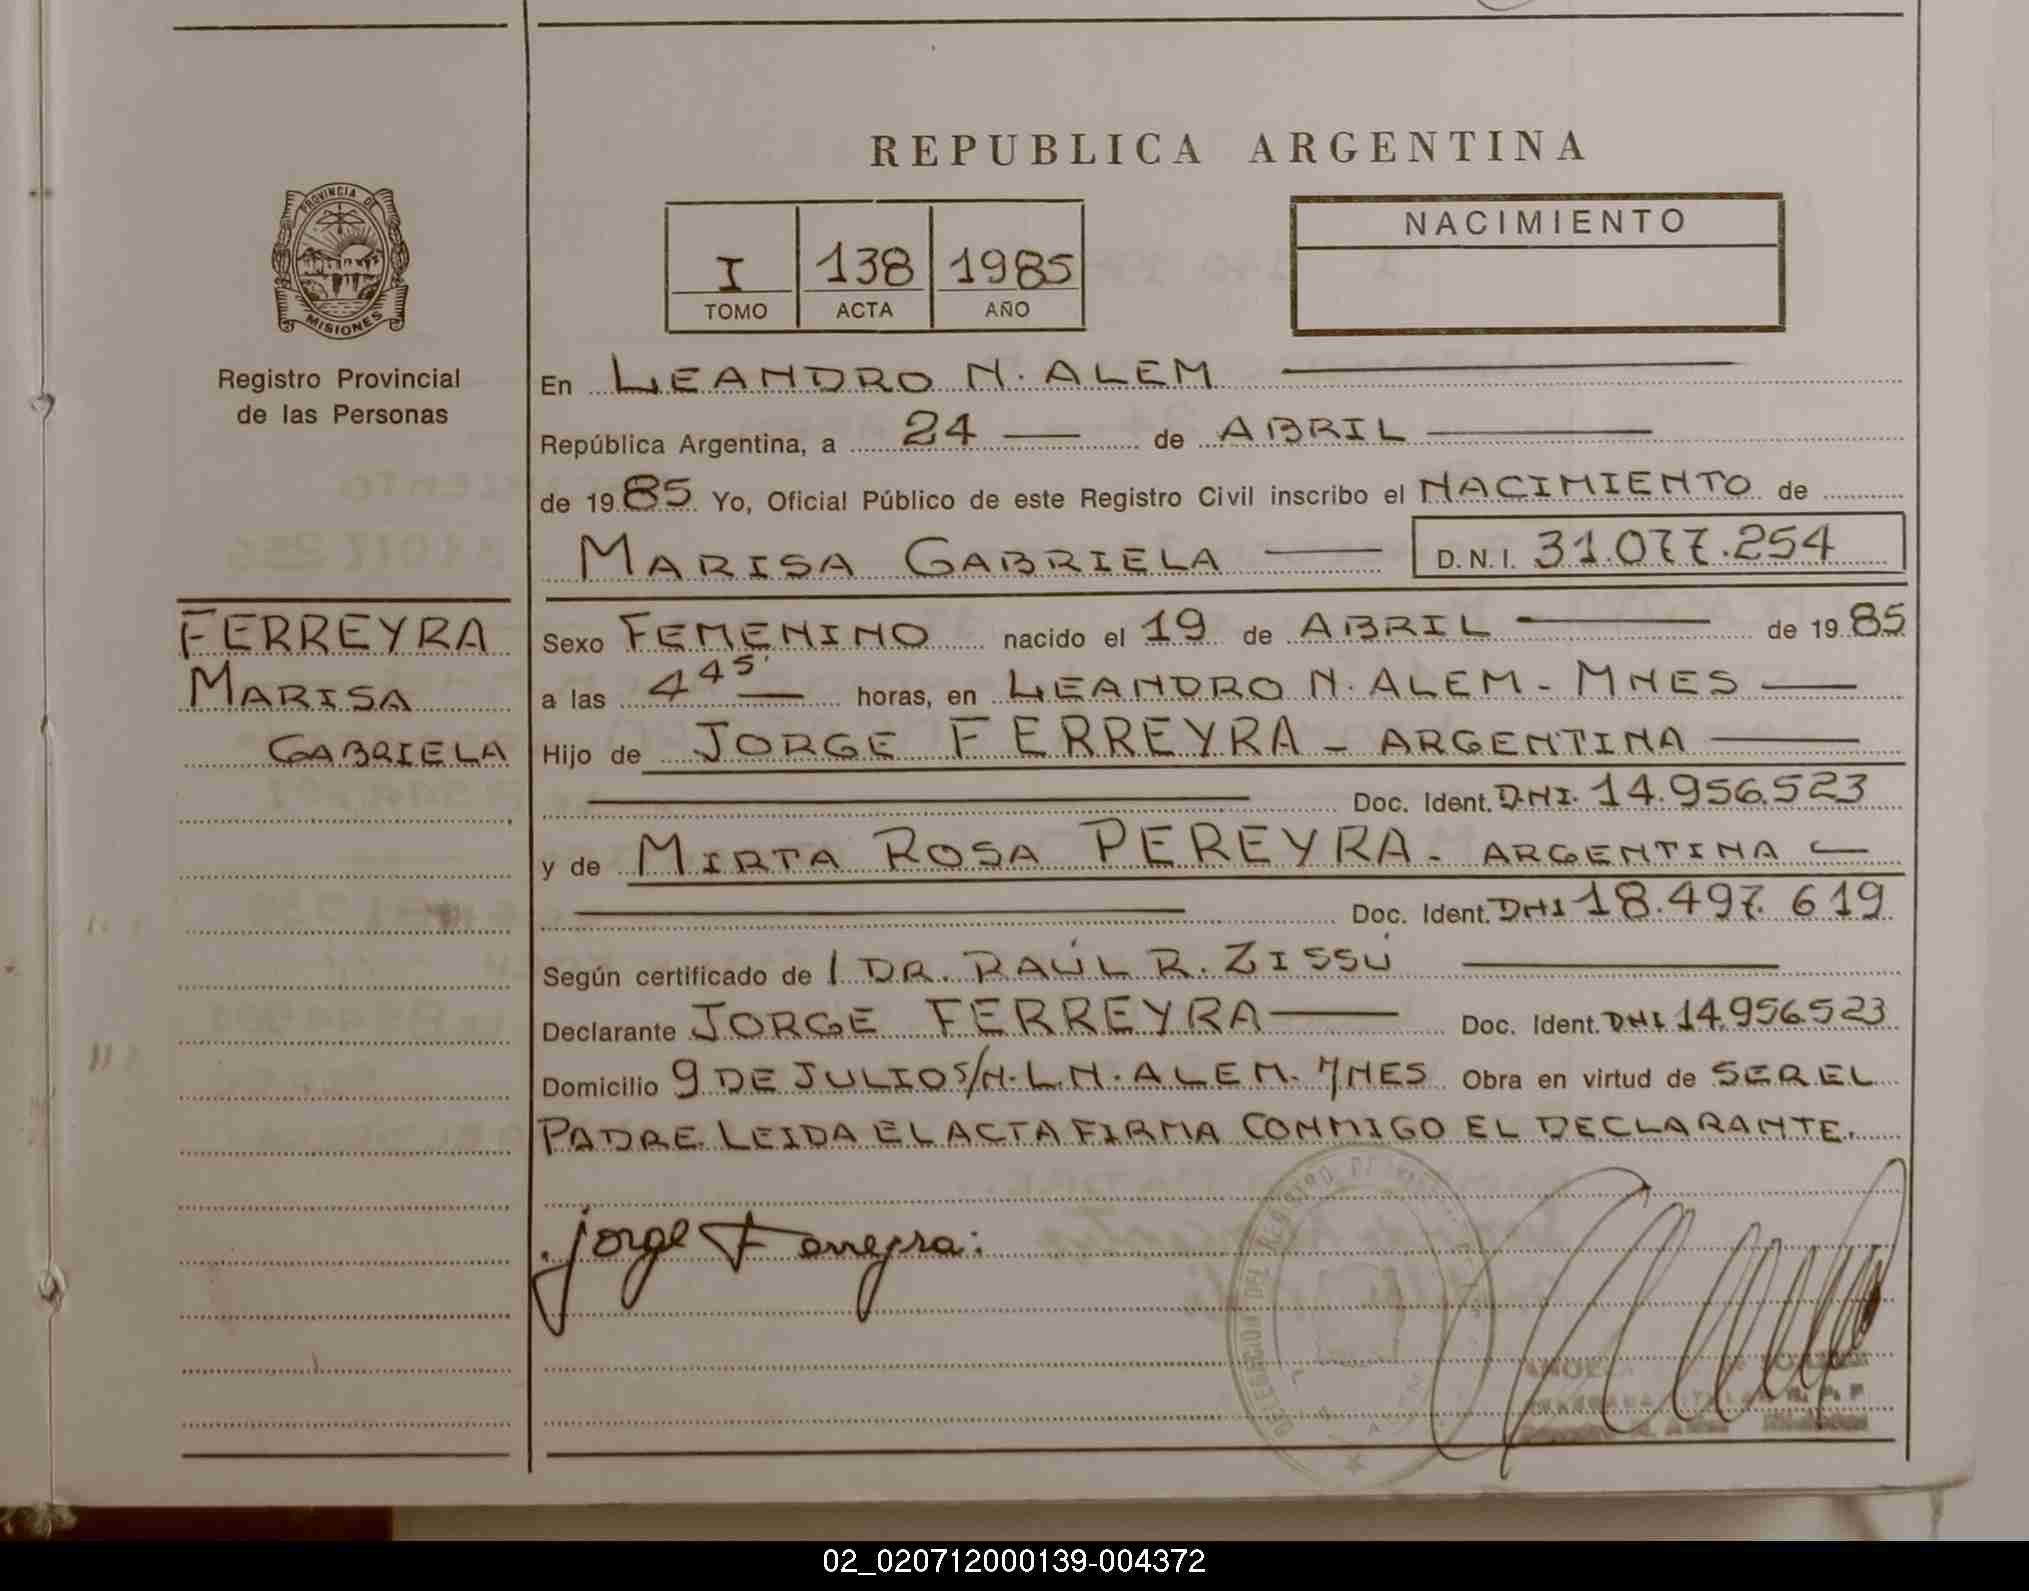 REPUBLICA ARGENTINA
PROVINCIA DE
MISIONES
Registro Provincial
de las Personas
I 138 1985
TOMO ACTA AÑO
NACIMIENTO
En LEANDRO N. ALEM
República Argentina, a 24 de ABRIL
de 1985 Yo, Oficial Público de este Registro Civil inscribo el NACIMIENTO de
MARISA GABRIELA D.N.I. 31.077.254
FERREYRA
MARISA
GABRIELA
Sexo FEMENINO nacido el 19 de ABRIL de 1985
a las 4 45' horas, en LEANDRO N. ALEM - MNES
Hijo de JORGE FERREYRA - ARGENTINA
Doc. Ident. DNI. 14.956.523
y de MIRTA ROSA PEREYRA - ARGENTINA
Doc. Ident. DNI 18.497.619
Según certificado de / DR. RAÚL R. ZISSÚ
Declarante JORGE FERREYRA Doc. Ident. DNI 14.956.523
Domicilio 9 DE JULIO S/N. L.N. ALEM. MNES Obra en virtud de SER EL
PADRE. LEIDA EL ACTA FIRMA CONMIGO EL DECLARANTE.
Jorge Ferreyra
02_020712000139-004372